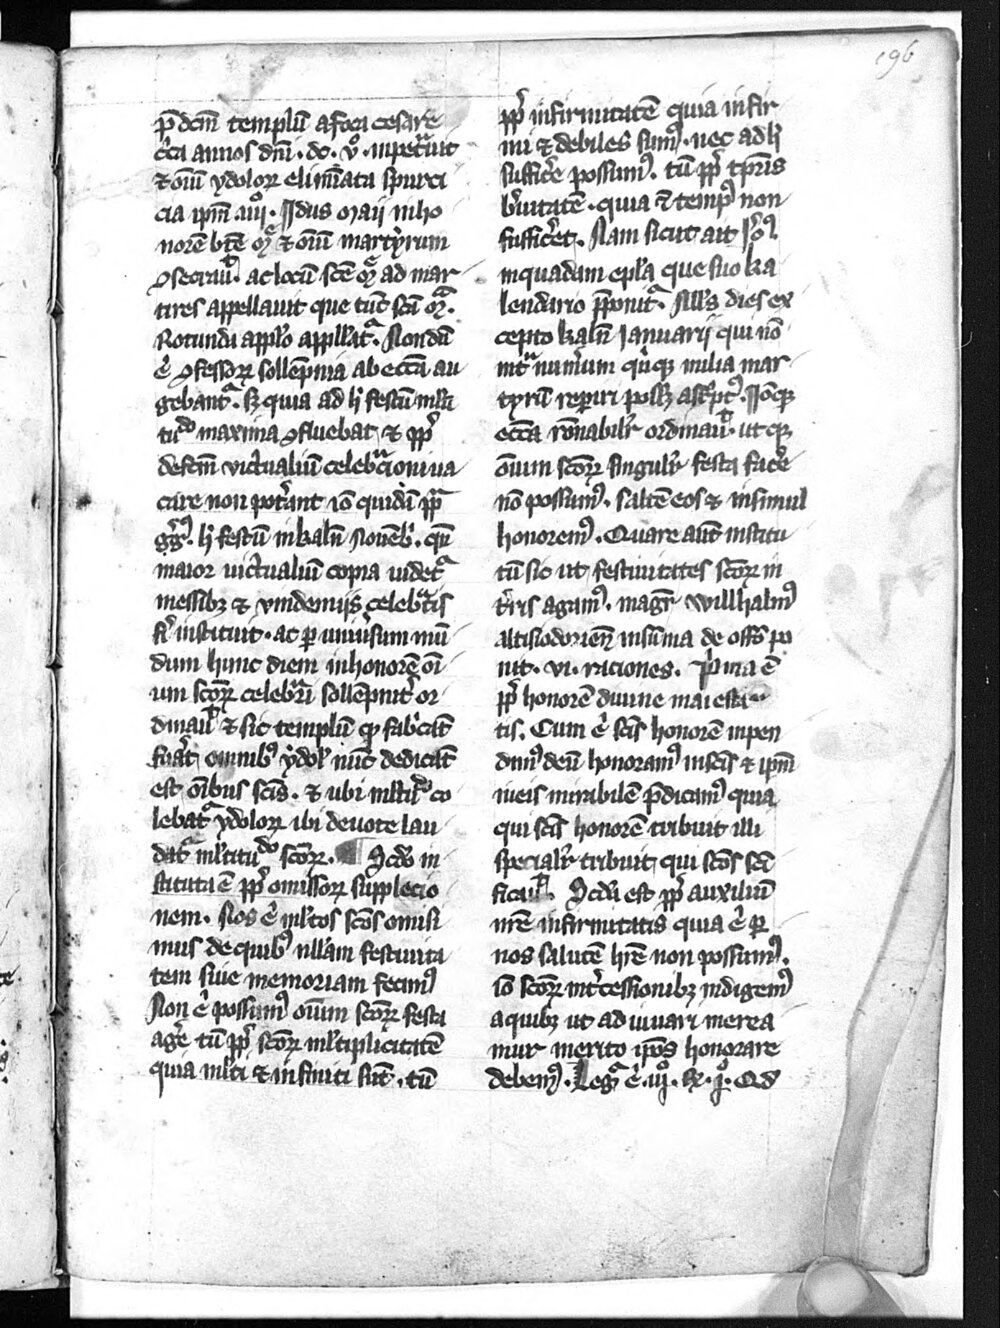 196
p̄dcm̄ templū a foca cesare
c̄ca annos dn̄i · dc · vͦ · inpet̃uit
⁊ oīū ydolorꝝ eliminata spurci
cia ip̄m · iiiͦ · Jdus maii in ho
norē btē mꝫ ⁊ oīū martyrum
ꝯsecrau̇ᵗ · ac locū scē mꝫ ad mar
tires appellauit que tūc scā mꝫ ·
Rotunda appło appłłat̃ · Nondū
ē ꝯfessorꝝ sollēpnia ab ecc̄a au
gebant̃ · Sꝫ quia ad h̄ festū mł̄ti
tuᵈᵒ maxima ꝯfluebat ⁊ ꝓp̃
defcm̄ victualiū celebr̄cioni ua
care non pot̃ant iō quidā pp̄
gg̃ꝰ · h̄ festū in kaln̄ Nouēb̃ · qn̄
maior uictualiū copia uidet̃
messibꝫ ⁊ vindemijs celebr̃tis
fı̃ instituit · ac ꝑ uniu̇sum mū
dum hunc diem in honorē oı̄
um scōꝝ celebr̃i sollēpnit̃ or
dinau̇ᵗ ⁊ sic templū qḋ fab̃icāt̃
fuãt omnibꝰ ydoł nūc dedicāt̃
est oı̄bus scı̄s · ⁊ ubi mł̄tiᵈᵒ co
lebat̃ ydolorꝝ ibi deuote lau
dat̃ mł̄titu ᵈᵒ scōꝝ · Scdo in
stituta ē ꝓp̃ omissorꝝ supplecio
nem · Nos ē mł̄tos scōs omisi
mus de quibꝰ nłłam festiuita
tem siue memoriam fecimꝰ
Non ē possumꝰ oīum scōꝝ festa
aḡe tū ꝓp̃ scōꝝ mł̄tiplicitatē
quia mł̄ti ⁊ infiniti sūt · tū
ꝓp̃ infirmitatē quia infir
mi ⁊ debiles sumꝰ · nec ad h̄
suffic̃e possumꝰ · tū ꝓp̃ tp̄ris
b̃uitatē · quia ⁊ tempꝰ non
suffic̃et · Nam sicut ait Jeroꝰ
in quadam epł̄a que suo ka
lendario p̄ponit̃ · Nłłs dies ex
cepto kaln̄ Januarij qui nō
int̃ num̃um qn̄qꝫ milia mar
tyrū reperiri possꝫ asc̃ptꝰ · Jōqꝫ
ecc̄a rōnabilr̃ ordinau̇ᵗ ut qꝫ
oīum scōꝝ singulr̃ festa fac̃e
nō possumꝰ · saltē eos ⁊ insimul
honoremꝰ · Quare aūt institu
tū sic ut festiuitates scōꝝ in
t̃ris agamꝰ · magr̄ Willhalmꝰ
altisiodorien̄ in sūma de offō po
nit · vi · raciones · P̃ma ē
ꝓp̃ honorē diuine maiesta
tis · Cum ē scīs honorē inpen
dimꝰ deū honoramꝰ in scīs ⁊ ip̄m
in eis mirabilē p̄dicamꝰ quia
qui scīs honorē tribuit illi
specialr̃ tribuit qui scōs scī
ficau̇ᵗ · Scda est ꝓp̃ auxiliū
nr̄e infirmitatis quia ē ꝑ
nos salutē hr̄e non possumꝰ ·
iō scōꝝ int̃cessionibꝫ indigemꝰ
a quibꝫ ut ad iuuari merea
mur merito ip̄os honorare
debemꝰ · Legit̃ ē · iijͦ · Rꝫ · jͦ · Qd